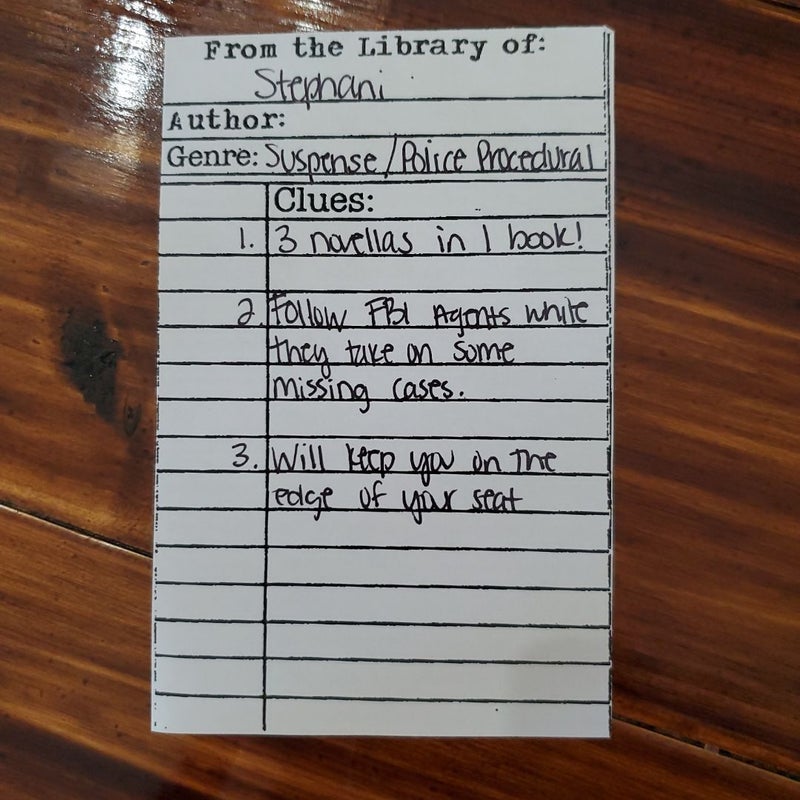 From the Library of:
Stephani
Author:
Genre: Suspense/Police Procedural
Clues:
1. 3 novellas in 1 book!
2. Follow FBI Agents while
they take on some
missing cases.
3. Will keep you on the
edge of your seat